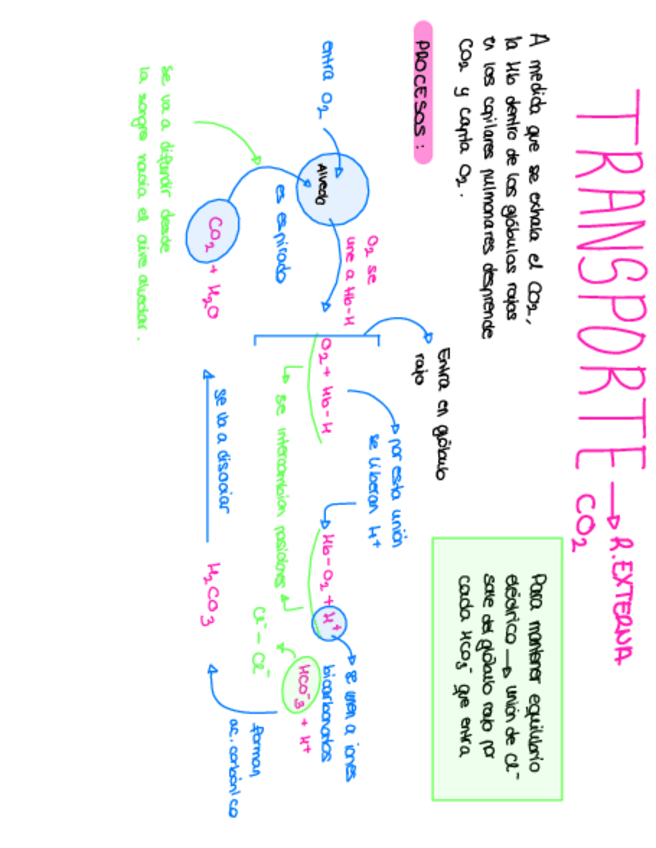 TRANSPORTE → R.EXTERNA
CO2
A medida que se exhala el CO2,
la Hb dentro de los glóbulos rojos
en los capilares pulmonares desprende
CO2 y capta O2.
Para mantener equilibrio
eléctrico → unión de Cl⁻
sale del glóbulo rojo por
cada HCO3⁻ que entra
PROCESOS:
Entra en glóbulo
rojo
→ por esta unión
se liberan H⁺
entra O2
Alveolo
O2 se
une a Hb-H
O2 + Hb-H
Hb-O2 + H⁺
→ se unen a iones
bicarbonatos
HCO⁻3 + H⁺
es espirado
↳ se intercambian posiciones ↲
Cl⁻ - Cl⁻
forman
ac. carbónico
CO2 + H2O
se va a disociar
H2CO3
se va a difundir desde
la sangre hacia el aire alveolar.